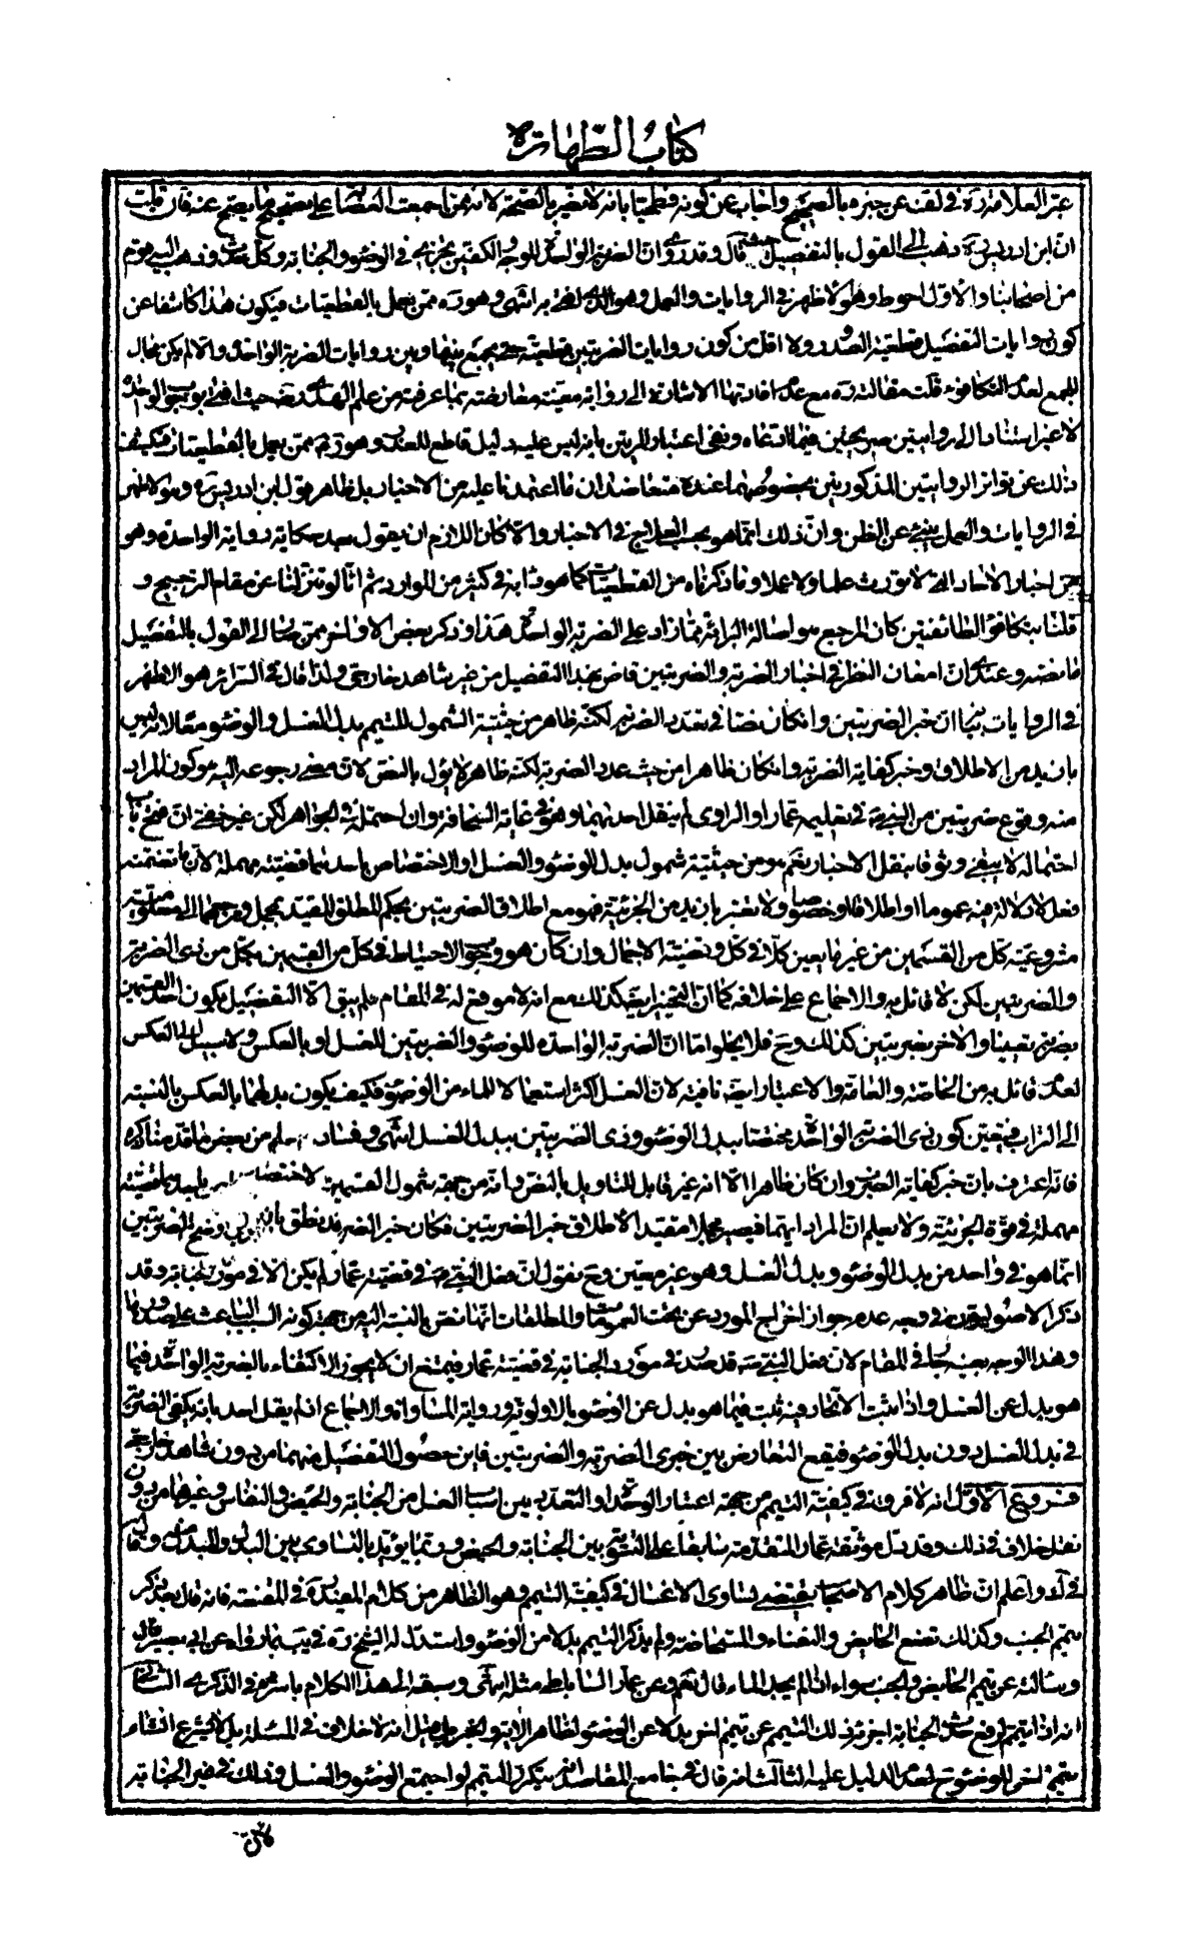 كتاب الطهارة
عبّر العلامة ره في لف عن خبره بالصحيح واجاب عن كونه فطحيّا بانه لا يضير بالصحة لانه ممن اجمعت العصابة على تصحيح ما يصح عنه فان قلت
انّ ابن ادريس ره ذهب الى القول بالتفصيل حيث قال وقد روى ان الضربة الواحدة للوجه والكفين يجزيه في الوضوء والجنابة وكل حدث وذهب اليه قوم
من اصحابنا والاوّل احوط وهو الاظهر في الروايات والعمل وهو الذى افتى به انتهى وهو ره ممن يعمل بالقطعيات فيكون هذا كاشفا عن
كون روايات التفصيل قطعيّة الصدور ولا اقل من كون روايات الضربتين قطعيّة حتى يجمع بينها وبين روايات الضربة الواحدة والا لم يكن مجال
للجمع لعدم التكافوء قلت مقالته ره مع عدم افادتها الاشارة الى رواية معيّنة معارضته بما عرفته من علم الهدى رض حيث افتى بوجوب الواحدة
لا غير استنادا الى روايتين صريحتين فيما ادعاه ونفى اعتبار المرتين بانه ليس عليه دليل قاطع للعذر وهو ره ممن يعمل بالقطعيات فيكشف
ذلك عن تواتر الروايتين المذكورتين بخصوصهما عنده متعاضدا ان ما اعتمدنا عليه من الاخبار بل ظاهر قول ابن ادريس ره وهو الاظهر
في الروايات والعمل ينبئ عن الظن وانّ ذلك انما هو بحسب العلاج في الاخبار والا كان اللازم ان يقول بعد حكاية رواية الواحدة وهو
من اخبار الاحاد التي لا تورث علما ولا عملا وما ذكرناه من القطعيات كما هو دابه في كثير من الموارد ثم انّا لو تنزّلنا عن مقام الترجيح و
قلنا بتكافؤ الطائفتين كان المرجع هو اصالة البرائة مما زاد على الضربة الواحدة هذا وذكر بعض الاواخر ممن مال الى القول بالتفصيل
ما نصّه وعندى ان امعان النظر في اخبار الضربة والضربتين قاض بهذا التفصيل من غير شاهد خارجى ولذا قال في السرائر هو الاظهر
في الروايات بيانه ان خبر الضربتين وان كان نصّا في تعدد الضربة لكنّه ظاهر من حيثية الشمول للتيمم بدل الغسل والوضوء معا لانه ليس
بازيد من الاطلاق وخبر كفاية الضربة وان كان ظاهرا من حيث عدد الضربة لكنه ظاهر لا يؤل بالنصّ لانّ معنى رجوعه اليه هو كون المراد
منه وقوع ضربتين من النبي ص في تعليمه عمار او الراوى لم ينقل احديهما وهو في غاية السخافة وان احتمله في الجواهر لكن غير خفى انّ فتح باب
احتماله لا يبقى وثوقا بنقل الاخبار نعم هو من حيثية شمول بدل الوضوء والغسل او الاختصاص باحدهما قضيّة مهملة لانّ ما تضمنه
فعل لا دلالة فيه عموما او اطلاقا او خصوصا ولا نعتبر بازيد من الجزئية فهو مع اطلاق الضربتين بحكم المطلق المقيد بمجمل ومرجعهما الى معلوميّة
مشروعيّة كل من القسمين من غير تعيين كلّا في كلّ وقضيّة الاجمال وان كان هو وجوب الاحتياط في كلّ من القسمين بكلّ من ذى الضربة
والضربتين لكن لا قائل به والاجماع على خلافه كما انّ التخيير ايضا كذلك مع انه لا موقع له في المقام فلم يبق الّا التفصيل بكون احد القسمين
بضربة تعيينا والاخر بضربتين كذلك وح فلا يخلو امّا انّ الضربة الواحدة للوضوء والضربتين للغسل او بالعكس ولا سبيل الى العكس
لعدم قائل به من الخاصّة والعامّة والاعتبار ايضا نافيه لانّ الغسل اكثر استعمالا للماء من الوضوء فكيف يكون بدلهما بالعكس بالنسبة
الى التراب فيتعين كون ذى الضربة الواحدة مختصّا ببدل الوضوء وذى الضربتين ببدل الغسل انتهى وفساد يعلم من بعض ما قدمنا ذكره
فانّه اعترف بان خبر كفاية الضربة وان كان ظاهرا الّا انه غير قابل للتاويل بالنصّ وانّه من جهة شمول القسمين لاختصاص قضيّة
مهملة في قوّة الجزئيّة ولا يعلم انّ المراد ايهما فيصير مجملا مقيّد الاطلاق خبر الضربتين فكان خبر الضربة قد نطق بان وضع الضربتين
انما هو في واحد من بدل الوضوء وبدل الغسل وهو غير معين وح نقول انّ فعل النبي ص في قضيّة عمار لم يكن الا في مورد الجنابة وقد
ذكر الاصوليون في وجه عدم جواز اخراج المورد عن تحت العمومات والمطلقات انّها نصّ بالنسبة اليه من جهة كونه السبب الباعث على صدورها
وهذا الوجه بعينه جار في المقام لانّ فعل النبي ص قد صدر في مورد الجنابة في قضيّة عمار فيمتنع ان لا يجوز الاكتفاء بالضربة الواحدة فيما
هو بدل عن الغسل واذا ثبت الاتحاد فيه ثبت فيما هو بدل عن الوضوء بالاولويّة ورواية المساواة والاجماع اذ لم يقل احد بانه يكفى الضربة
في بدل الغسل دون بدل الوضوء فيقع التعارض بين خبرى الضربة والضربتين فاين حصول التفصيل منهما من دون شاهد خارجى
فروع الاوّل انه لا فرق في كيفيّة التيمم من جهة اعتبار الوحدة او التعدد بين اسباب الغسل من الجنابة والحيض والنفاس وغيرها من دون
نقل خلاف في ذلك وقد دلّ موثقة عمار المتقدمة سابقا على التسوية بين الجنابة والحيض وربما يؤيد بالتساوى بين البدل والمبدل منه وقال
في ك واعلم انّ ظاهر كلام الاصحاب يقتضى تساوى الاغسال في كيفيّة التيمم وهو الظاهر من كلام المفيد ره في المقنعة فانه قال بعد ذكر
تيمم الجنب وكذلك تصنع الحايض والنفساء والمستحاضة ولم يذكر التيمم بدلا من الوضوء واستدل له الشيخ ره في يب بما رواه عن ابى بصير قال
وسالته عن تيمم الحايض والجنب سواء اذا لم يجدا الماء قال نعم وعن عمار الساباطى مثله انتهى وسبقه الى هذا الكلام باسره في الذكرى الثانى
انه اذا تيمّم لرفع حدث الجنابة اجزئه ذلك التيمم عن تيمم اخر بدلا عن الوضوء لظاهر الاية والخبر بل قيل انه لا خلاف في المسئلة بل لا يشرع انشاء
تيمّم اخر للوضوء ح لعدم الدليل عليه الثالث انه قال في جامع المقاصد انه يتكرر التيمم لو اجتمع الوضوء والغسل وذلك في غير الجنابة
لانّ